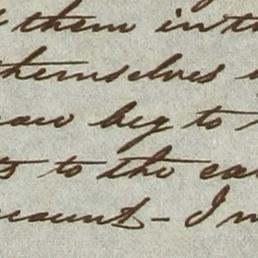 them in th
themselves
now beg to
to the ca
count - I